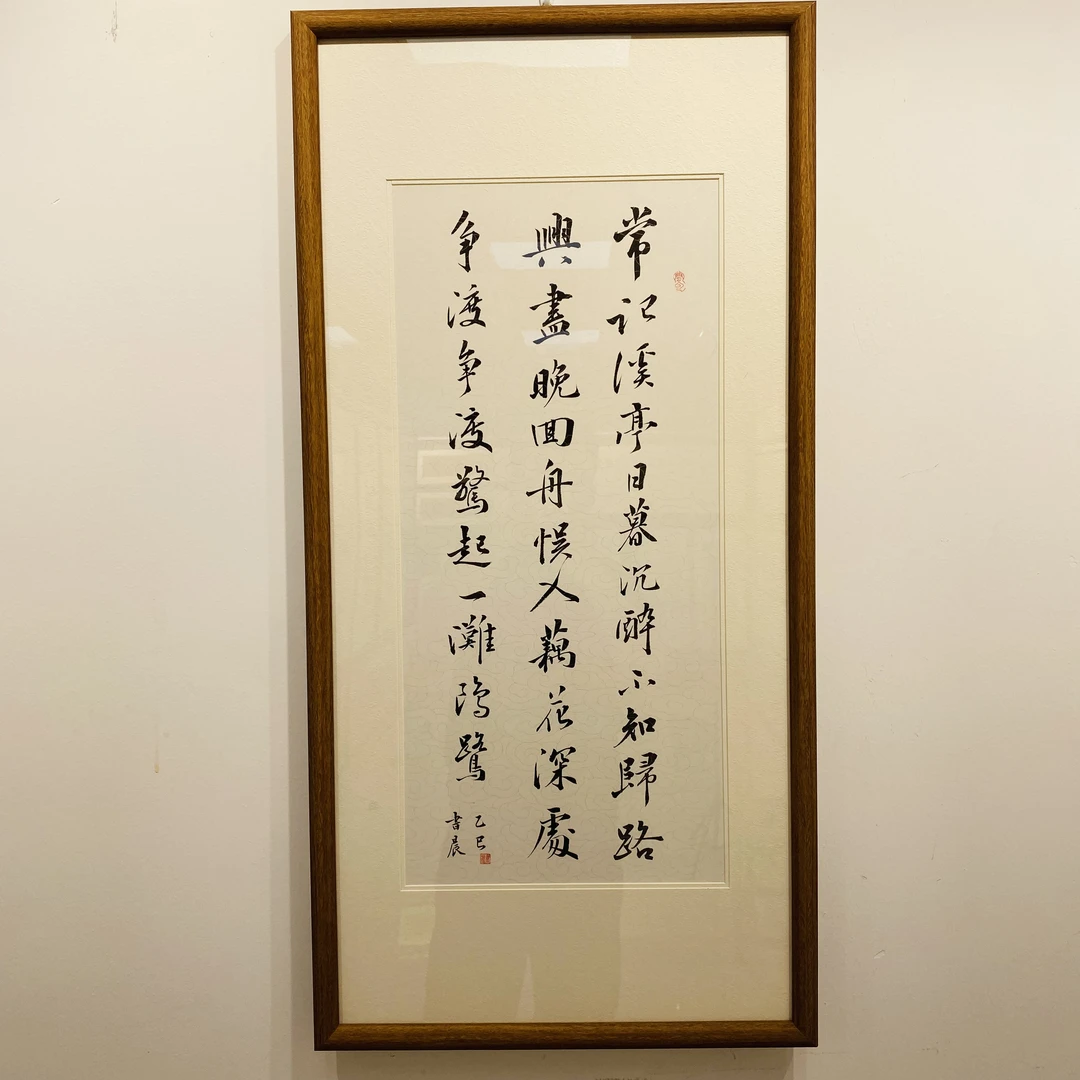 常记溪亭日暮沉醉不知歸路
興盡晚回舟悮入藕花深處
争渡争渡驚起一灘鸥鷺
乙巳
書晨